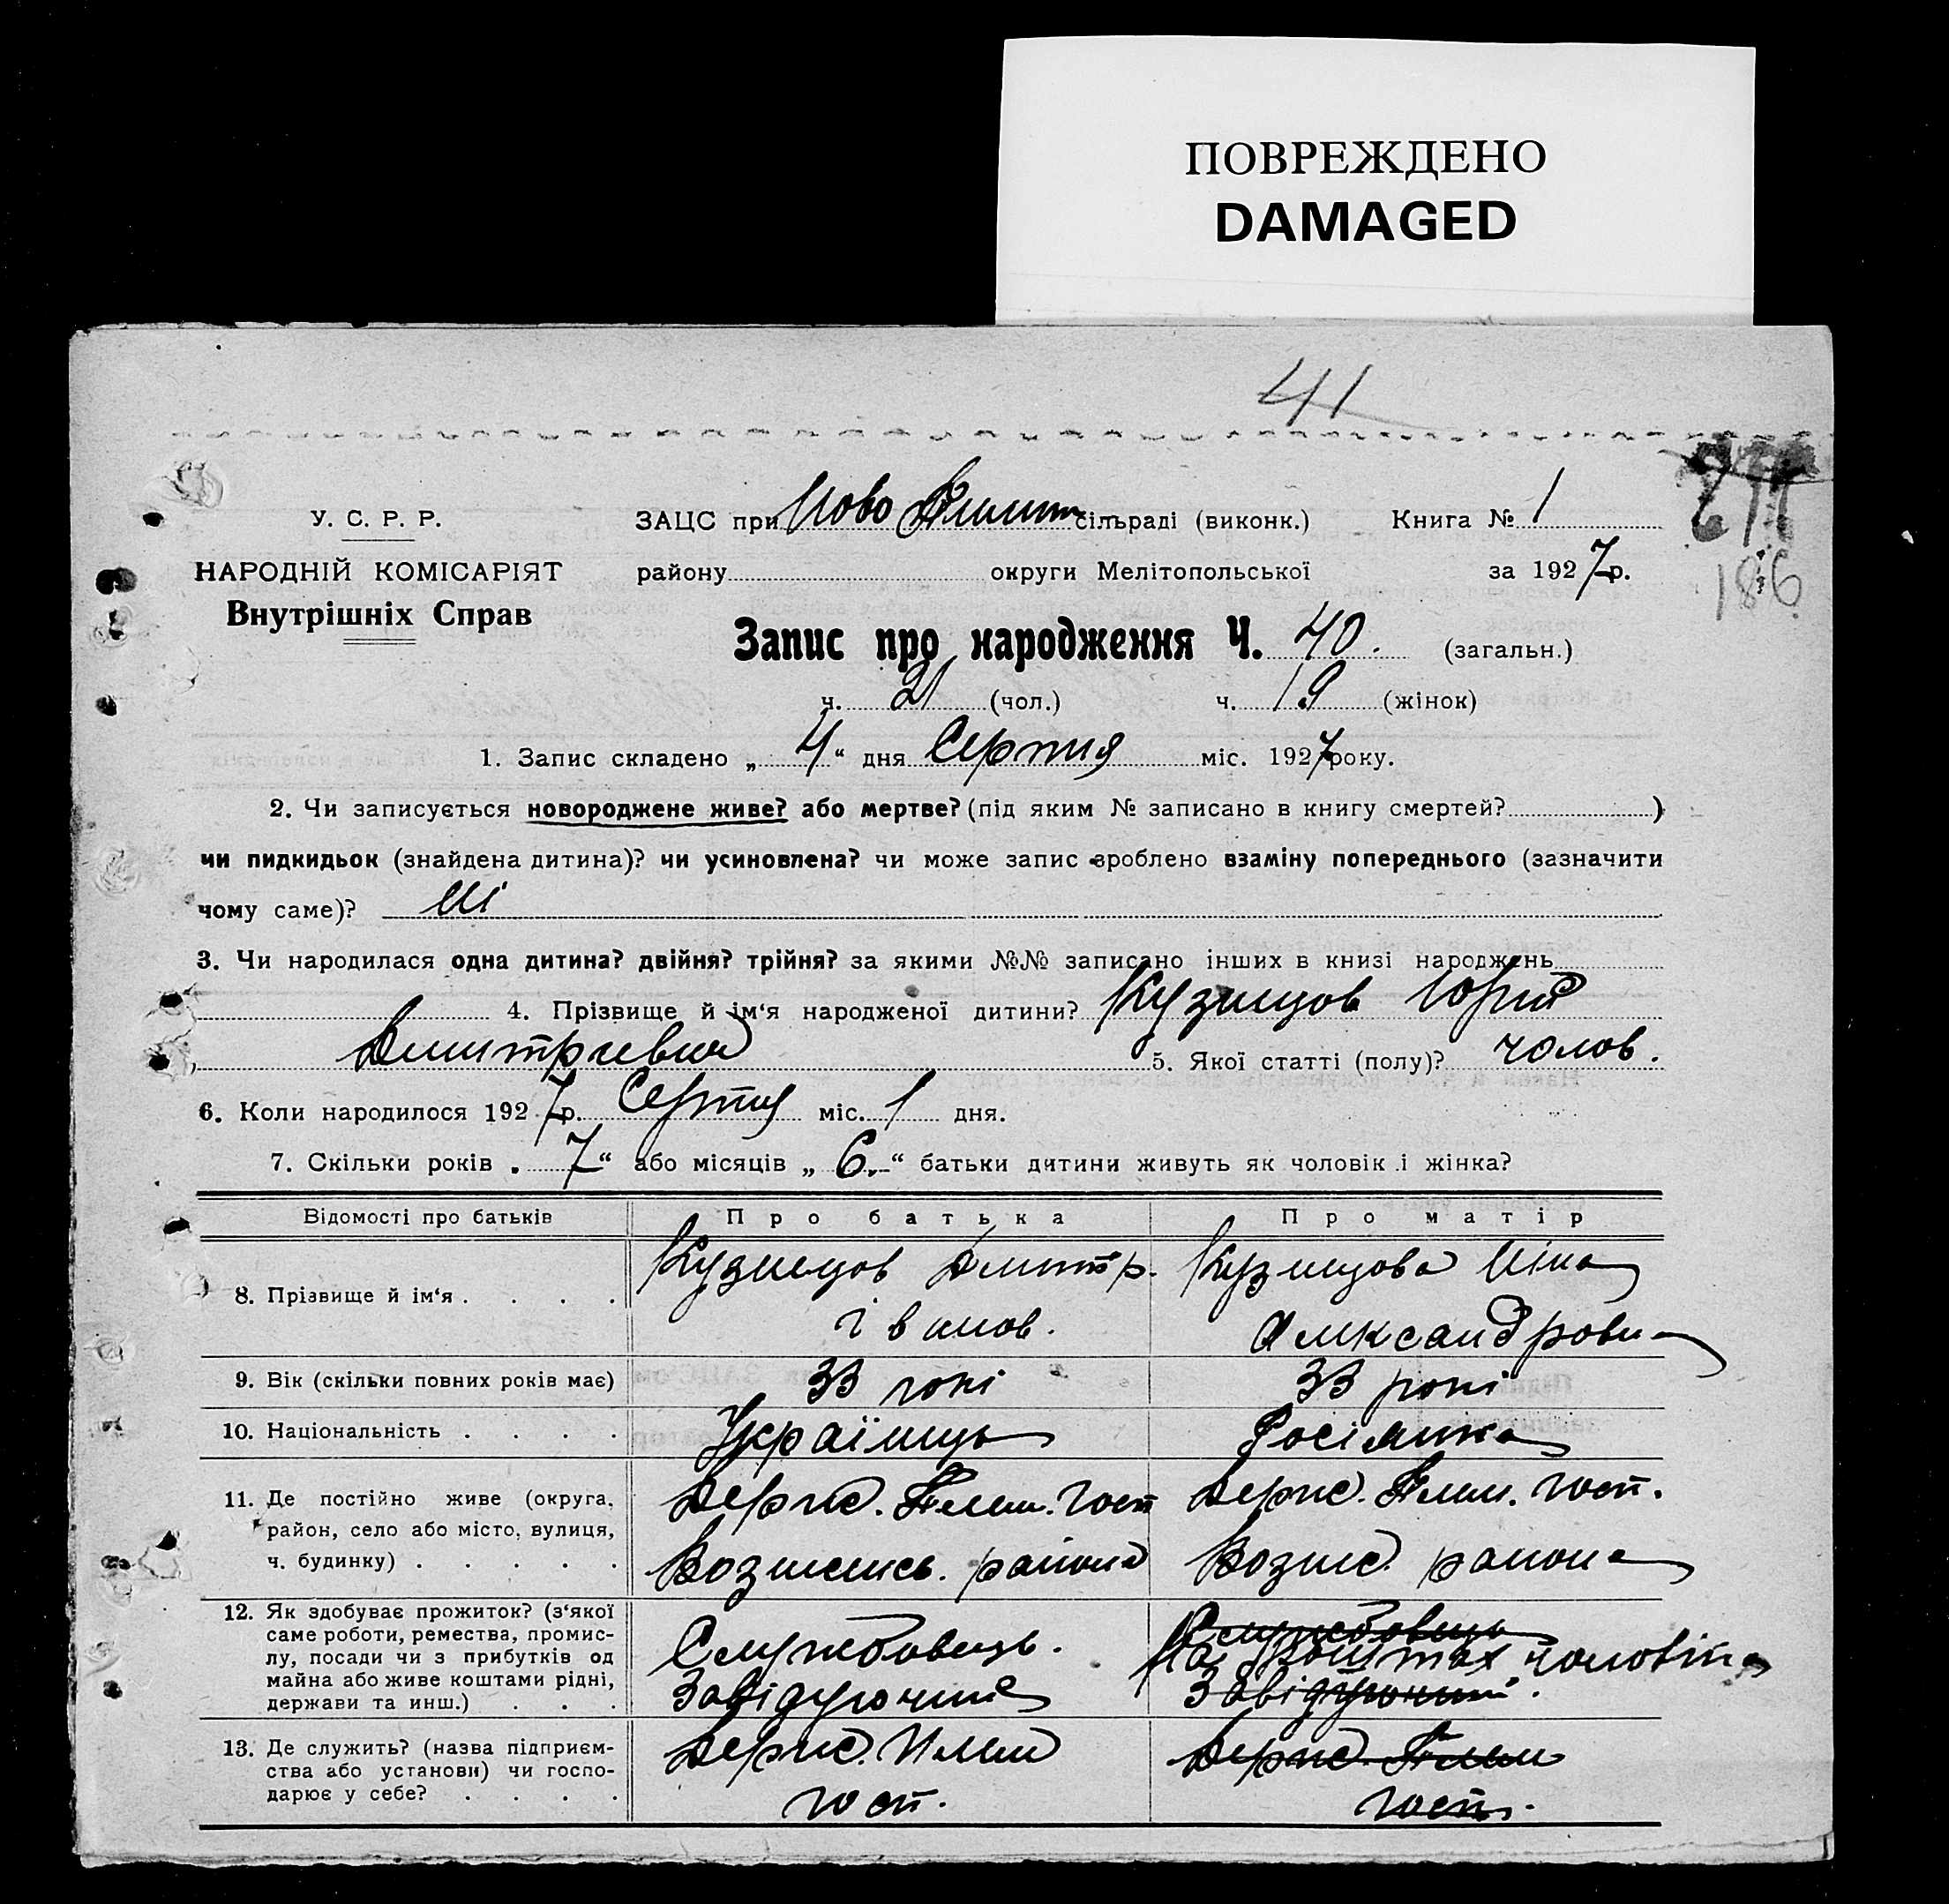 ПОВРЕЖДЕНО
DAMAGED
41
У. С. Р. Р.
НАРОДНІЙ КОМІСАРІЯТ
Внутрішніх Справ
ЗАЦС при Ново сільраді (виконк.) Книга № 1
району округи Мелітопольської за 1927 р.
186
Запис про народження Ч. 40. (загальн.)
ч. 21 (чол.) ч. 19 (жінок)
1. Запис складено „ 4 “ дня Серпня міс. 1927 року.
2. Чи записується новороджене живе? або мертве? (під яким № записано в книгу смертей? )
чи пидкидьок (знайдена дитина)? чи усиновлена? чи може запис зроблено взаміну попереднього (зазначити
чому саме)? Ні
3. Чи народилася одна дитина? двійня? трійня? за якими №№ записано інших в книзі народжень
4. Прізвище й ім‘я народженої дитини? Кузнецов Юрій
Дмитрієвич 5. Якої статті (полу)? чолов.
6. Коли народилося 1927 р. Серпня міс. 1 дня.
7. Скільки років „ 7 “ або місяців „ 6. “ батьки дитини живуть як чоловік і жінка?
Відомості про батьків Про батька Про матір
8. Прізвище й ім‘я . . . . Кузнецов Дмитр. Кузнецова Ніна
Іванов. Александровна
9. Вік (скільки повних років має) 33 рокі 33 рокі
10. Національність . . . . Українець Росіянка
11. Де постійно живе (округа, Держ. Плем. Госп Держ. Плем. Госп.
район, село або місто, вулиця,
ч. будинку) . . . . . Вознесенсь. района Вознес. района
12. Як здобуває прожиток? (з‘якої
саме роботи, ремества, промис- Службовець. Службовець
лу, посади чи з прибутків од На коштах чоловіка
майна або живе коштами рідні, Завідуючий Завідуючий.
держави та инш.) . . .
13. Де служить? (назва підприєм- Держ. Плем Держ. Плем
ства або установи) чи госпо-
дарює у себе? . . . . Госп. Госп.